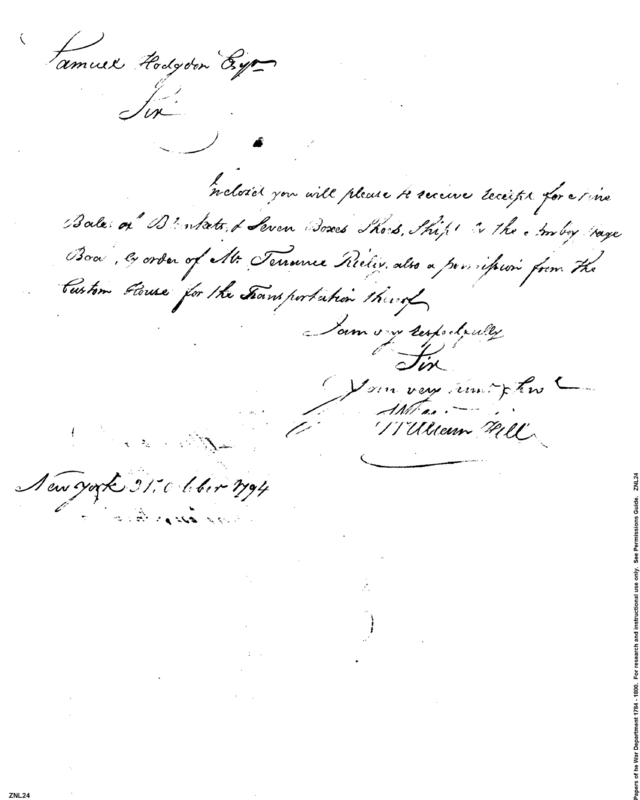 Samuel Hodgdon Esqr
Sir
Inclos'd you will please to receive receipt for Nine
Bales of Blankets, & Seven Boxes Shoes, Ship'd the Amboy Stage
Boat, by order of Mr. Terrance Reiley, also a permission from the
Custom House for the Transportation thereof
I am very respectfully
Sir
Your very
William Hill
New York October 1794
Papers of the War Department 1784 - 1800. For research and instructional use only. See Permissions Guide. ZNL24
ZNL24